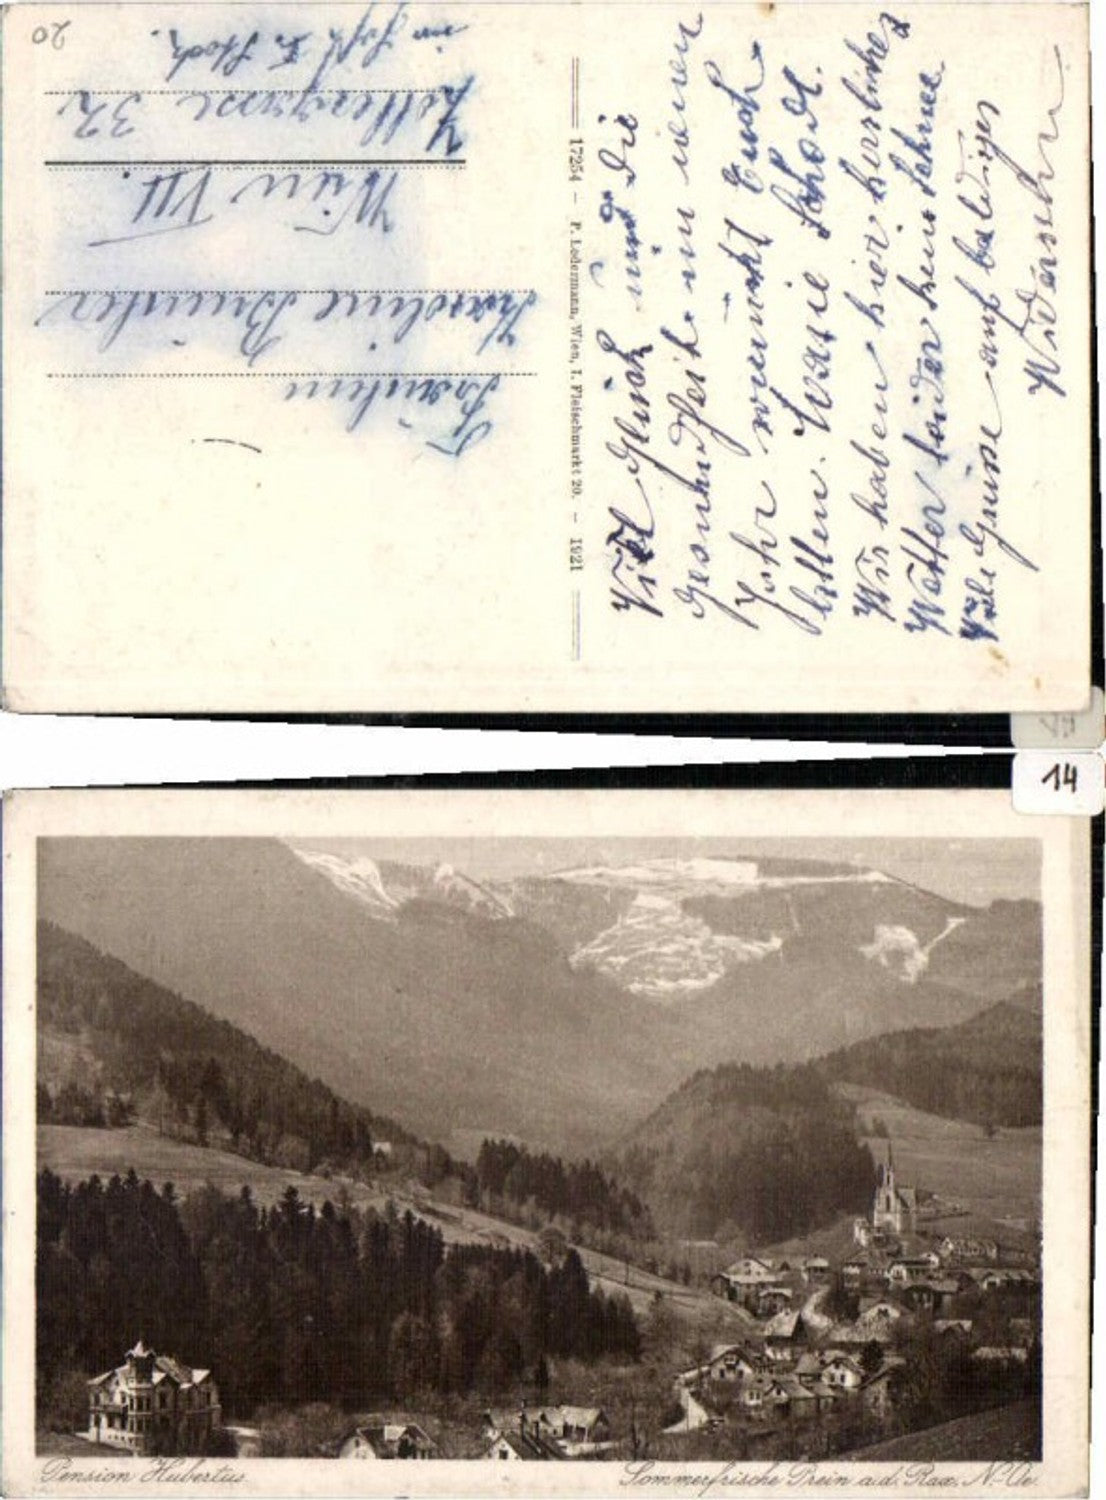 20
Fräulein
Karoline
Wien VII.
Zollergasse 32
im Hofe I. Stock.
17254 – P. Ledermann, Wien, I. Fleischmarkt 20. – 1921
Viel Glück und die
Gesundheit im neuen
Jahr wünscht Euch
Wir haben hier herrliches
Wetter leider kein Schnee
Viele Grüsse auf baldiges
Widersehn
14
Pension Hubertus
Sommerfrische Prein a.d. Rax, N.-Oe.